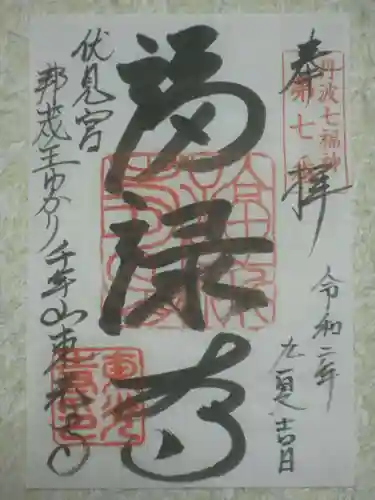 奉拝
丹波七福神
第七番
令和二年
九夏吉日
福禄寿
伏見宮
邦茂王ゆかり千年山東光寺
東光寺